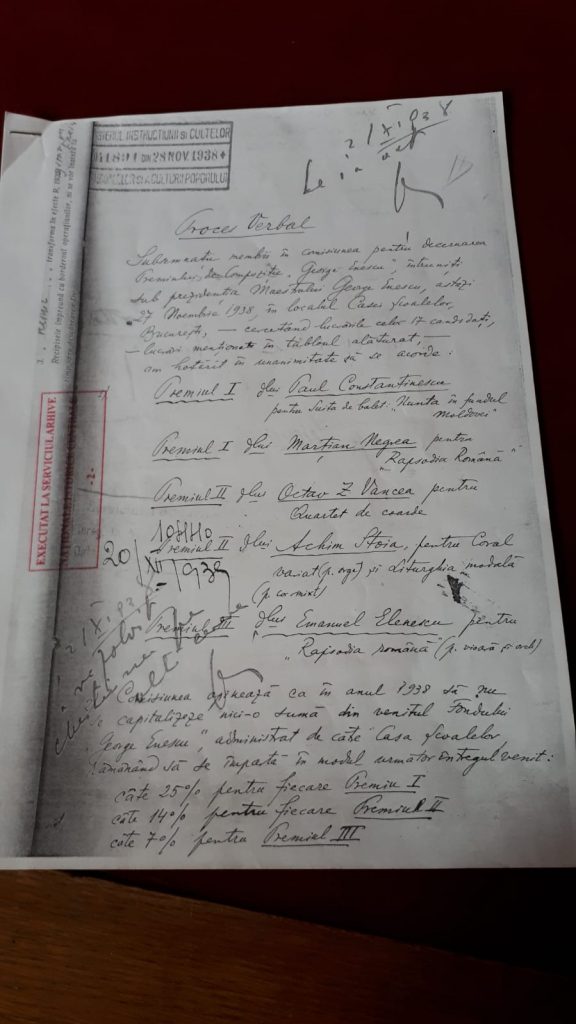 INSTRUCTIUNII SI CULTELOR
DIN 28 NOV. 1938
CULTURII POPORULUI
21 XI 938
Proces Verbal
Subsemnatii membri în comisiunea pentru decernarea
Premiului de Compoziție „George Enescu”, întruniți
sub prezidenția Maestrului George Enescu, astăzi
27 Noembrie 1938, în localul Casei Școalelor,
București, — cercetând lucrările celor 17 candidați,
— lucrări menționate în tabloul alăturat, —
am hotărît în unanimitate să se acorde:
Premiul I dlui Paul Constantinescu
pentru Suita de balet: „Nunta în fundul
Moldovei”
Premiul I dlui Marțian Negrea pentru
„Rapsodia Română”
Premiul II dlui Octav Z Vancea pentru
Quartet de coarde
Premiul II dlui Achim Stoia, pentru Coral
variat (p. orgă) și Liturghia modală
(p. cor mixt)
Premiul III dlui Emanuel Elenescu pentru
„Rapsodia română” (p. vioară și orch)
Comisiunea opinează ca în anul 1938 să nu
se capitalizeze nici-o sumă din venitul Fondului
„George Enescu”, administrat de către Casa Școalelor,
rămânând să se împartă în modul următor întregul venit:
câte 25% pentru fiecare Premiu I
câte 14% pentru fiecare Premiul II
câte 7% pentru Premiul III
EXECUTAT LA SERVICIUL ARHIVE
NAȚIONALE
-2-
20/XII/1938
21 XI 938
transforma în efecte
Recipisele împreună cu borderoul operațiunilor, ni se vor înainta